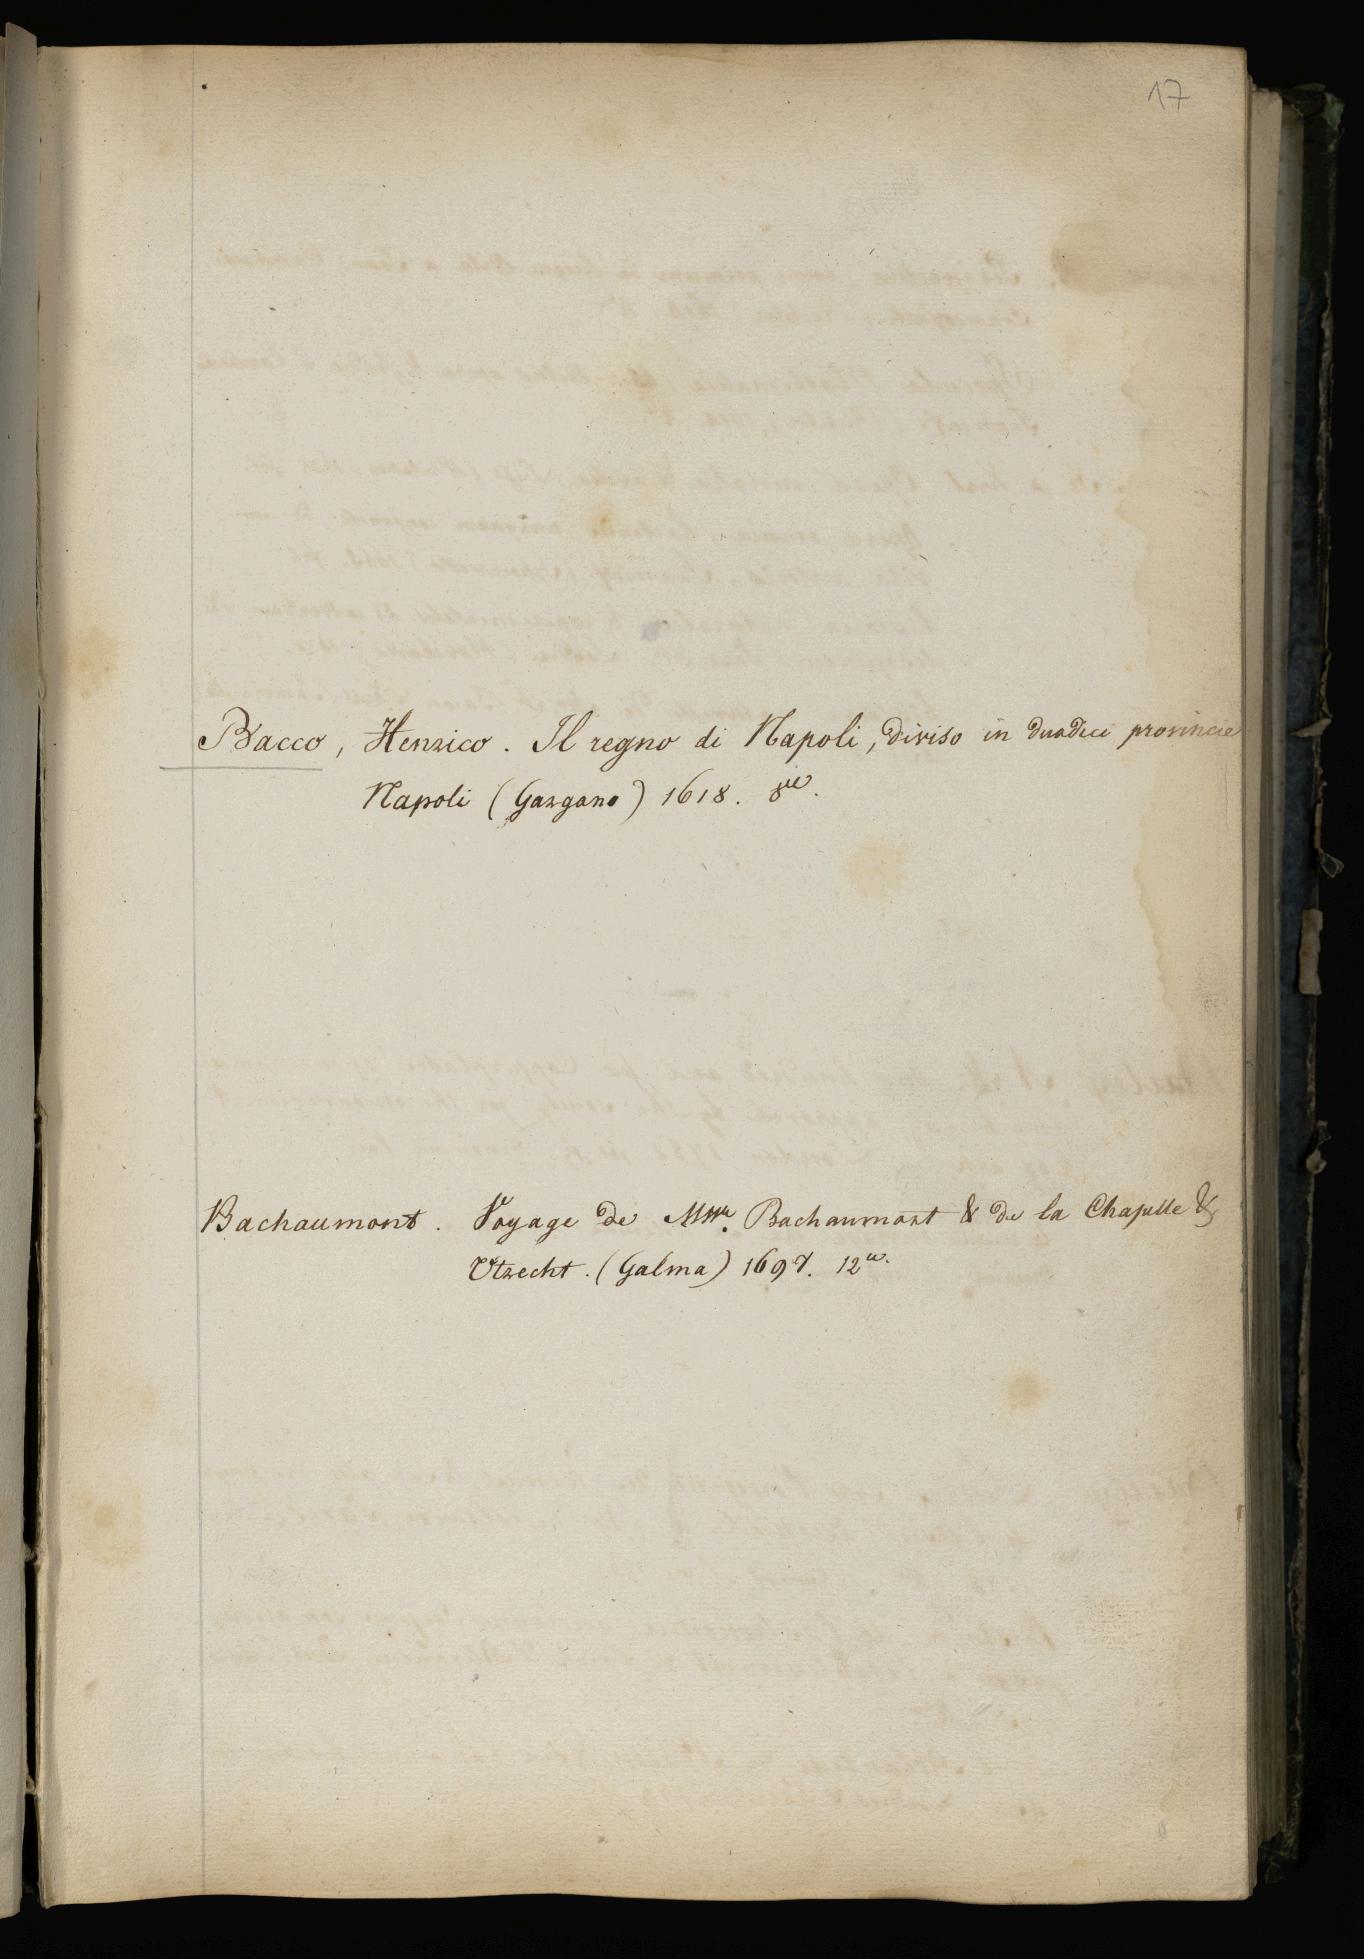 17
Bacco, Henrico. Il regno di Napoli, diviso in duodici provincie
Napoli (Gargano) 1618. 8ve.
Bachaumont. Voyage de Mrs. Bachaumont & de la Chapelle &
Utrecht. (Galma) 1697. 12o.